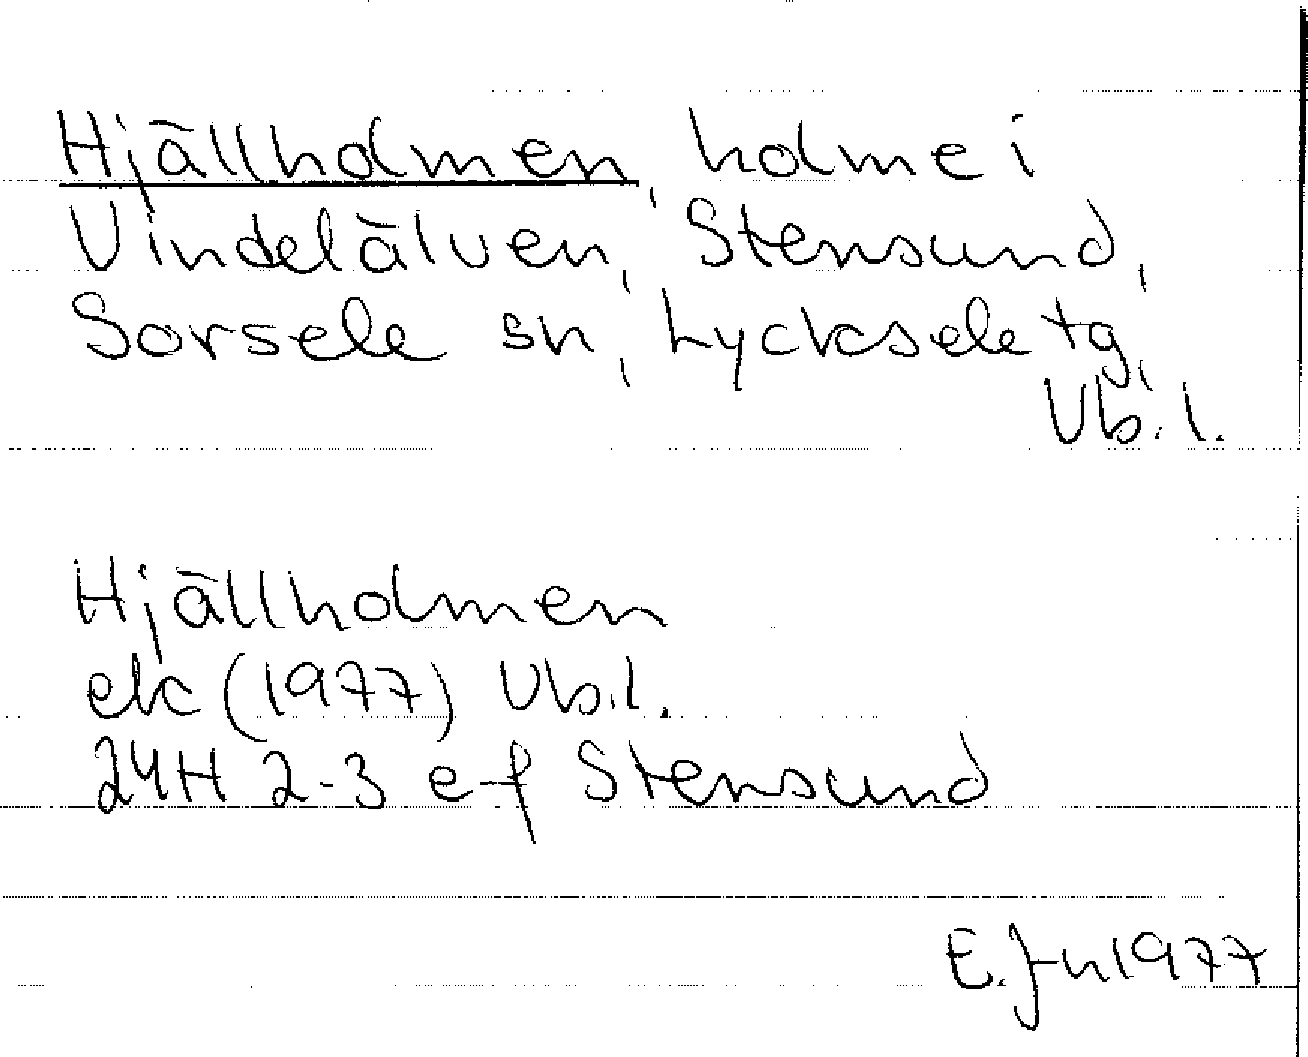 Hjällholmen, holme i
Vindelälven, Stensund,
Sorsele sn, Lycksele tg,
Vb. l.
Hjällholmen
ek (1977) Vb.l.
24H 2-3 e-f Stensund
E. Jn 1977